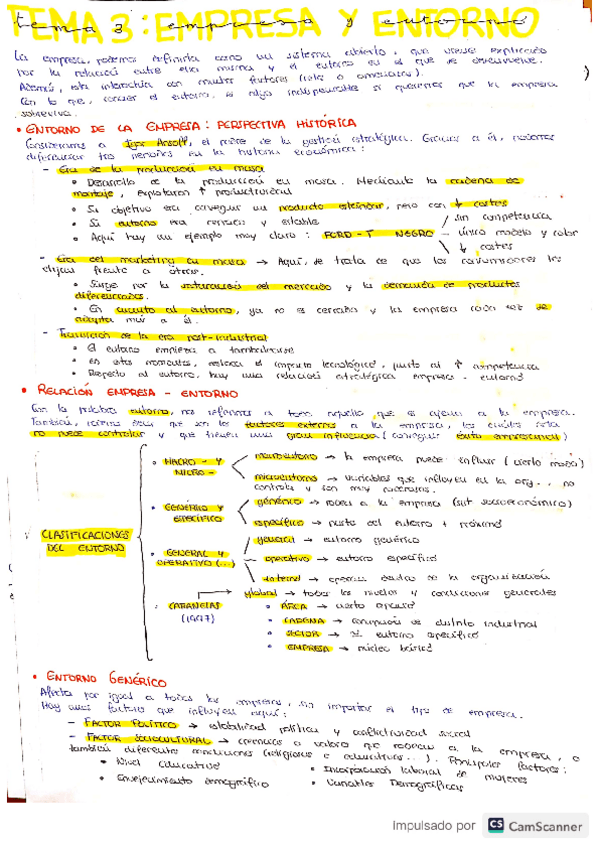 TEMA 3: EMPRESA Y ENTORNO
tema 3: empresa y entorno
La empresa, podemos definirla como un sistema abierto, que viene explicado
por la relación entre ella misma y el entorno en el que se desenvuelve.
Además, esta interactúa con muchos factores
Con lo que, conocer el entorno, es algo indispensable si queremos que la empresa
sobreviva.
• ENTORNO DE LA EMPRESA: PERSPECTIVA HISTÓRICA
Consideramos a Igor Ansoff, el padre de la gestión estratégica. Gracias a él, podemos
diferenciar tres periodos en la historia económica:
- Era de la producción en masa
• Desarrollo de la producción en masa. Mediante la cadena de
montaje, explotaron ↑ productividad
• Su objetivo era conseguir un producto estándar, pero con ↓ costes
• Su entorno era cerrado y estable
• Aquí hay un ejemplo muy claro: FORD-T NEGRO
sin competencia
único modelo y color
↓ costes
- Era del marketing en masa → Aquí, se trata de que los consumidores les
elijan frente a otros.
• Surge por la saturación del mercado y la demanda de productos
diferenciados.
• En cuanto al entorno, ya no es cerrado y la empresa cada vez se
adapta más a él.
- Transición de la era post-industrial
• El entorno empieza a tambalearse
• En estos momentos, destaca el impacto tecnológico, junto al ↑ competencia
• Respecto al entorno, hay una relación estratégica empresa - entorno
• RELACIÓN EMPRESA - ENTORNO
Con la palabra entorno, nos referimos a todo aquello que es ajeno a la empresa.
También, podemos decir que son los factores externos a la empresa, los cuales esta
no puede controlar y que tienen una gran influencia (conseguir éxito empresarial)
CLASIFICACIONES
DEL ENTORNO
• MACRO - Y
MICRO -
macroentorno → la empresa puede influir (cierto modo)
microentorno → variables que influyen en la org... no
controla y son muy
• GENÉRICO Y
ESPECÍFICO
genérico → rodea a la empresa (sist socioeconómico)
específico → parte del entorno + próximo
• GENERAL Y
OPERATIVO (...)
general → entorno genérico
operativo → entorno específico
interno → dentro de la organización
• CABANELAS
(1997)
global → todos los niveles y condiciones generales
• ÁREA →
• CADENA → concepción de distrito industrial
• SECTOR → entorno específico
• EMPRESA → núcleo básico
• ENTORNO GENÉRICO
Afecta por igual a todas las empresas, sin importar el tipo de empresa.
Hay unos factores que influyen aquí:
- FACTOR POLÍTICO → estabilidad política y conflictividad social
- FACTOR SOCIOCULTURAL → creencias o valores que rodean a la empresa, o
también diferentes condiciones (religiosas o educativas...). Principales factores:
• Nivel Educativo
• Incorporación laboral de mujeres
• Envejecimiento demográfico
• Variables Demográficas
Impulsado por CS CamScanner